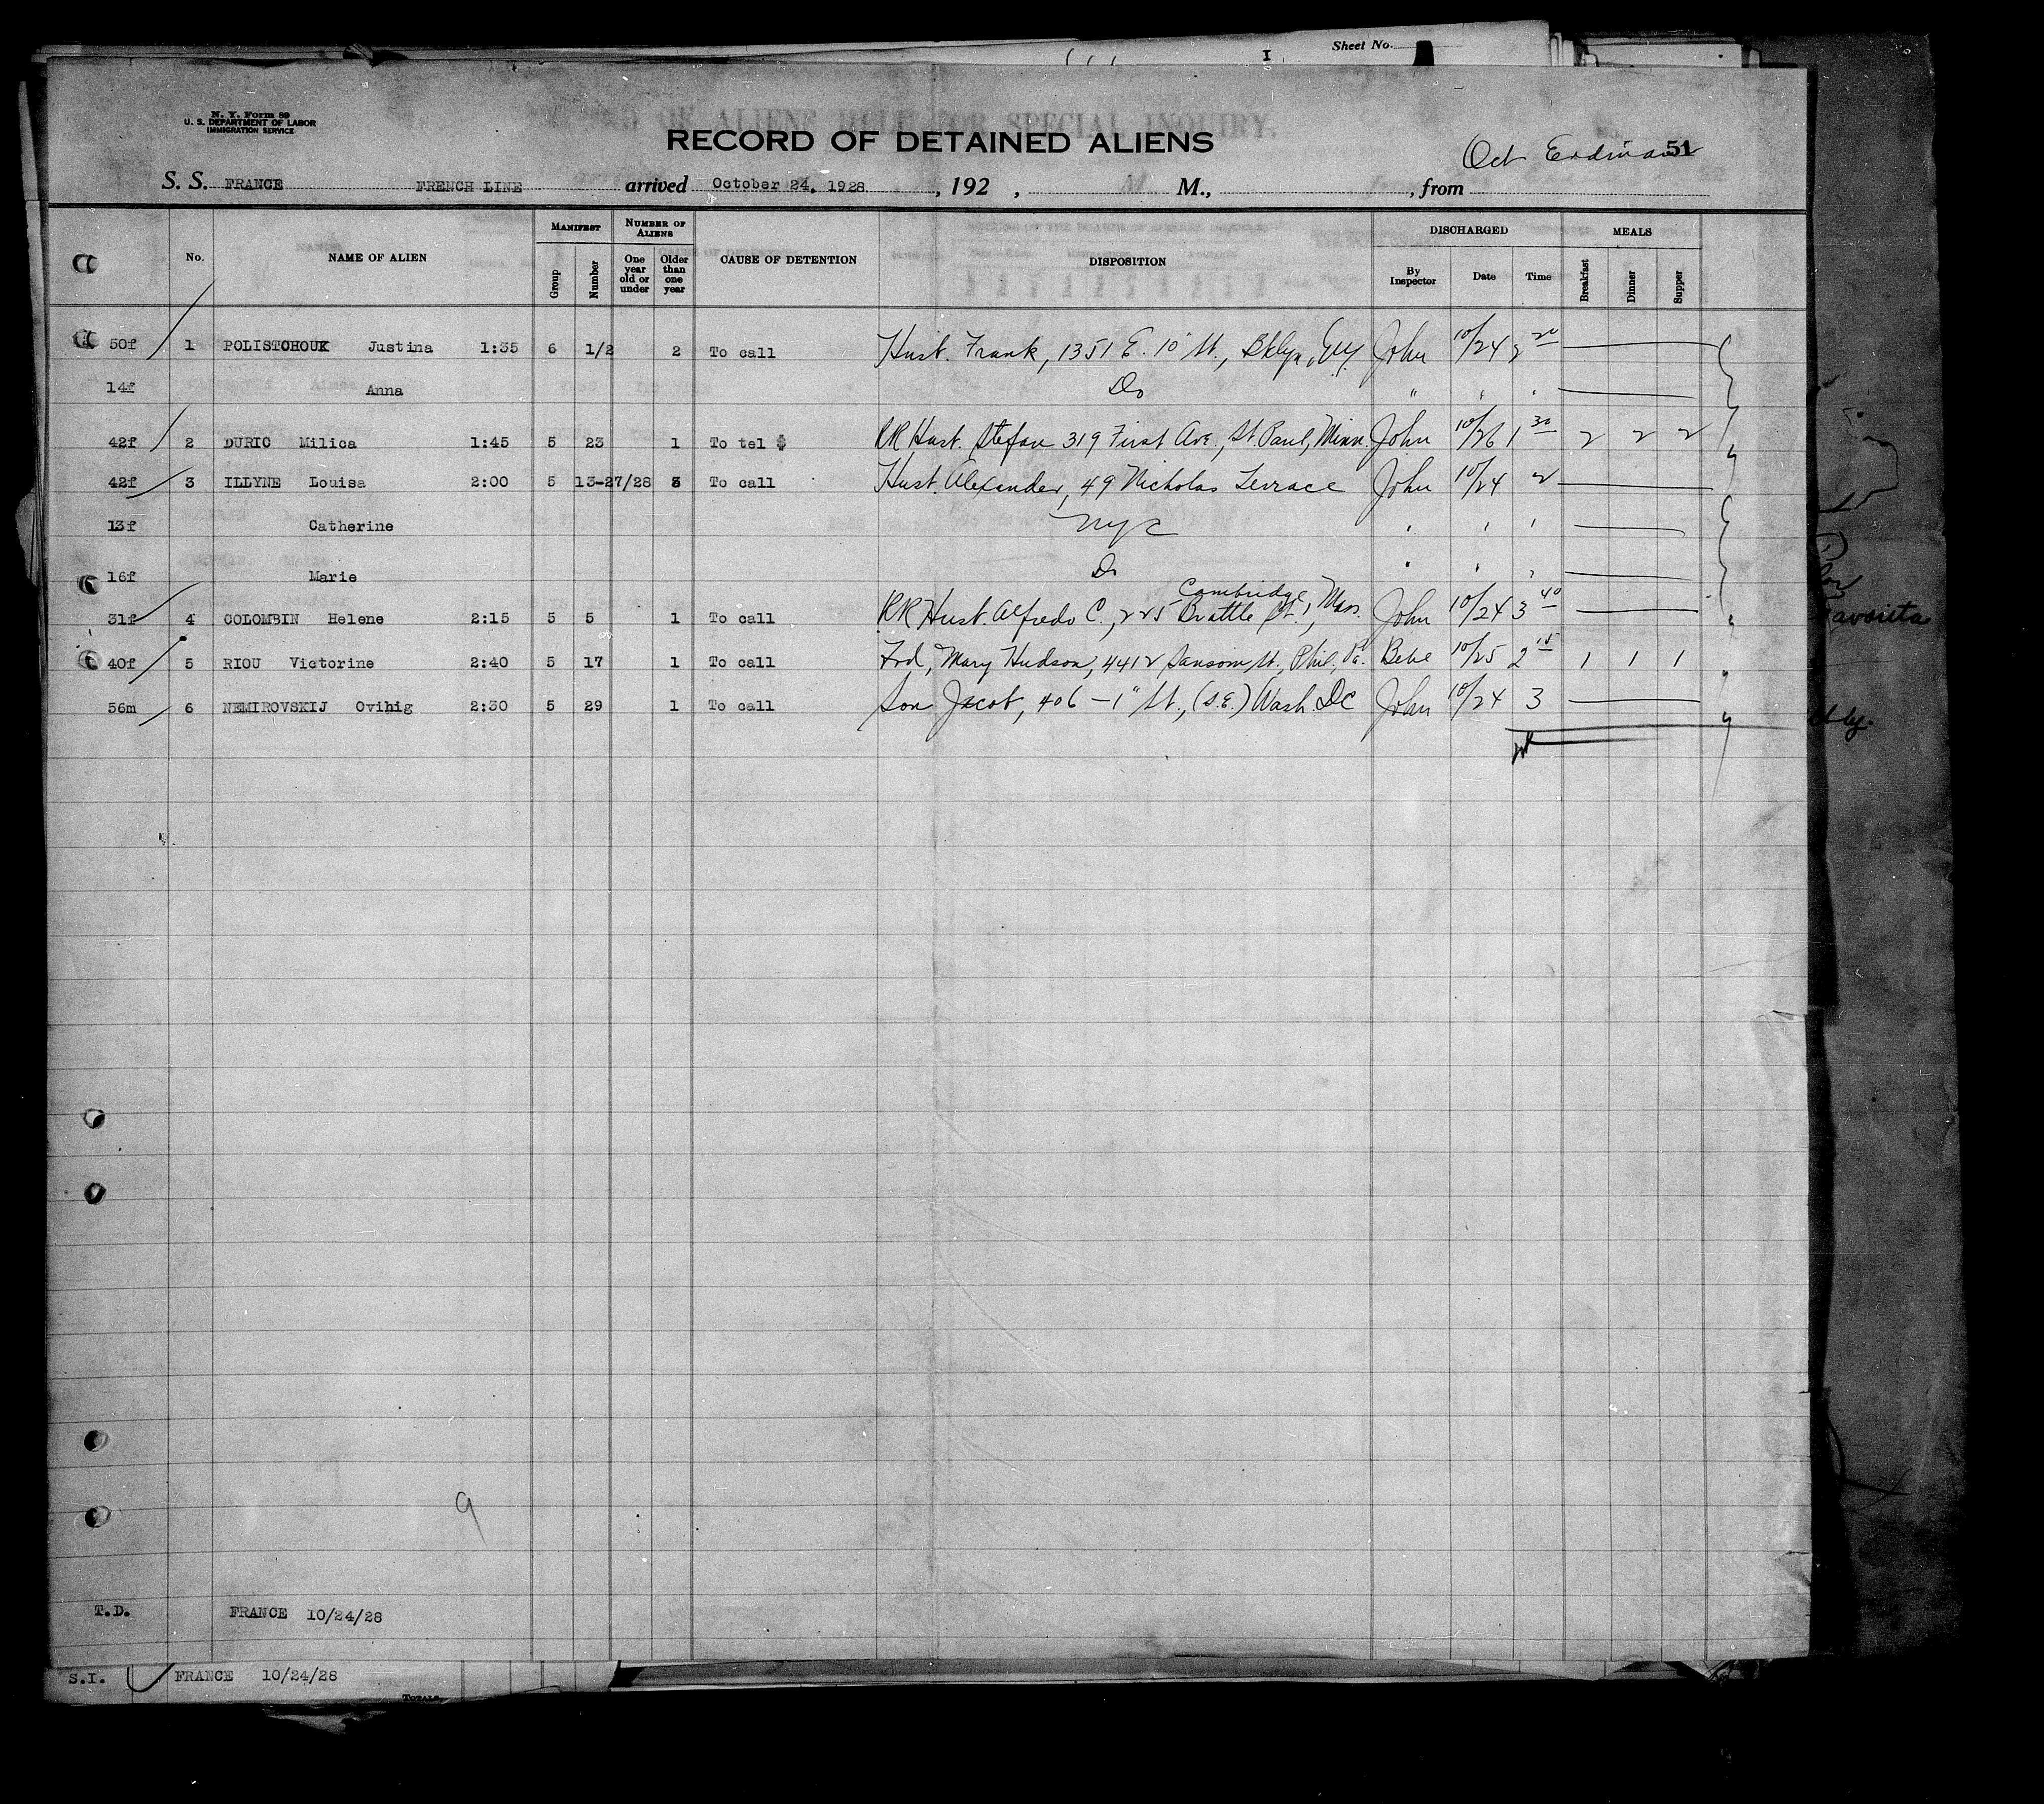 Sheet No.
I
N. Y. Form 89
U. S. DEPARTMENT OF LABOR
IMMIGRATION SERVICE
RECORD OF DETAINED ALIENS
51
Oct Erdman
S. S. FRANCE FRENCH LINE arrived October 24, 1928, 192 , M., , from
No. NAME OF ALIEN MANIFEST Group Number NUMBER OF ALIENS One year old or under Older than one year CAUSE OF DETENTION DISPOSITION DISCHARGED By Inspector Date Time MEALS Breakfast Dinner Supper
50f 1 POLISTCHOUK Justina 1:35 6 1/2 2 To call Husb. Frank, 1351 E. 10" St., Bklyn, NY. John 10/24 2 20
14f Anna Do " " "
42f 2 DURIC Milica 1:45 5 23 1 To tel $ RR Husb. Stefan 319 First Ave., St. Paul, Minn. John 10/26 1 30 2 2 2
42f 3 ILLYNE Louisa 2:00 5 13-27/28 3 To call Husb. Alexander, 49 Nicholas Terrace John 10/24 2
13f Catherine NYC " " "
16f Marie Do " " "
31f 4 COLOMBIN Helene 2:15 5 5 1 To call RR Husb. Alfredo C., 225 Brattle St., Cambridge, Mass. John 10/24 3 40
40f 5 RIOU Victorine 2:40 5 17 1 To call Frd, Mary Hudson, 4412 Sansom St., Phil. Pa. Bebe 10/25 2 15 1 1 1
56m 6 NEMIROVSKIJ Ovihig 2:30 5 29 1 To call Son Jacob, 406 - 1" St., (S.E.) Wash. DC John 10/24 3
9
T.D. FRANCE 10/24/28
S.I. FRANCE 10/24/28
TOTALS